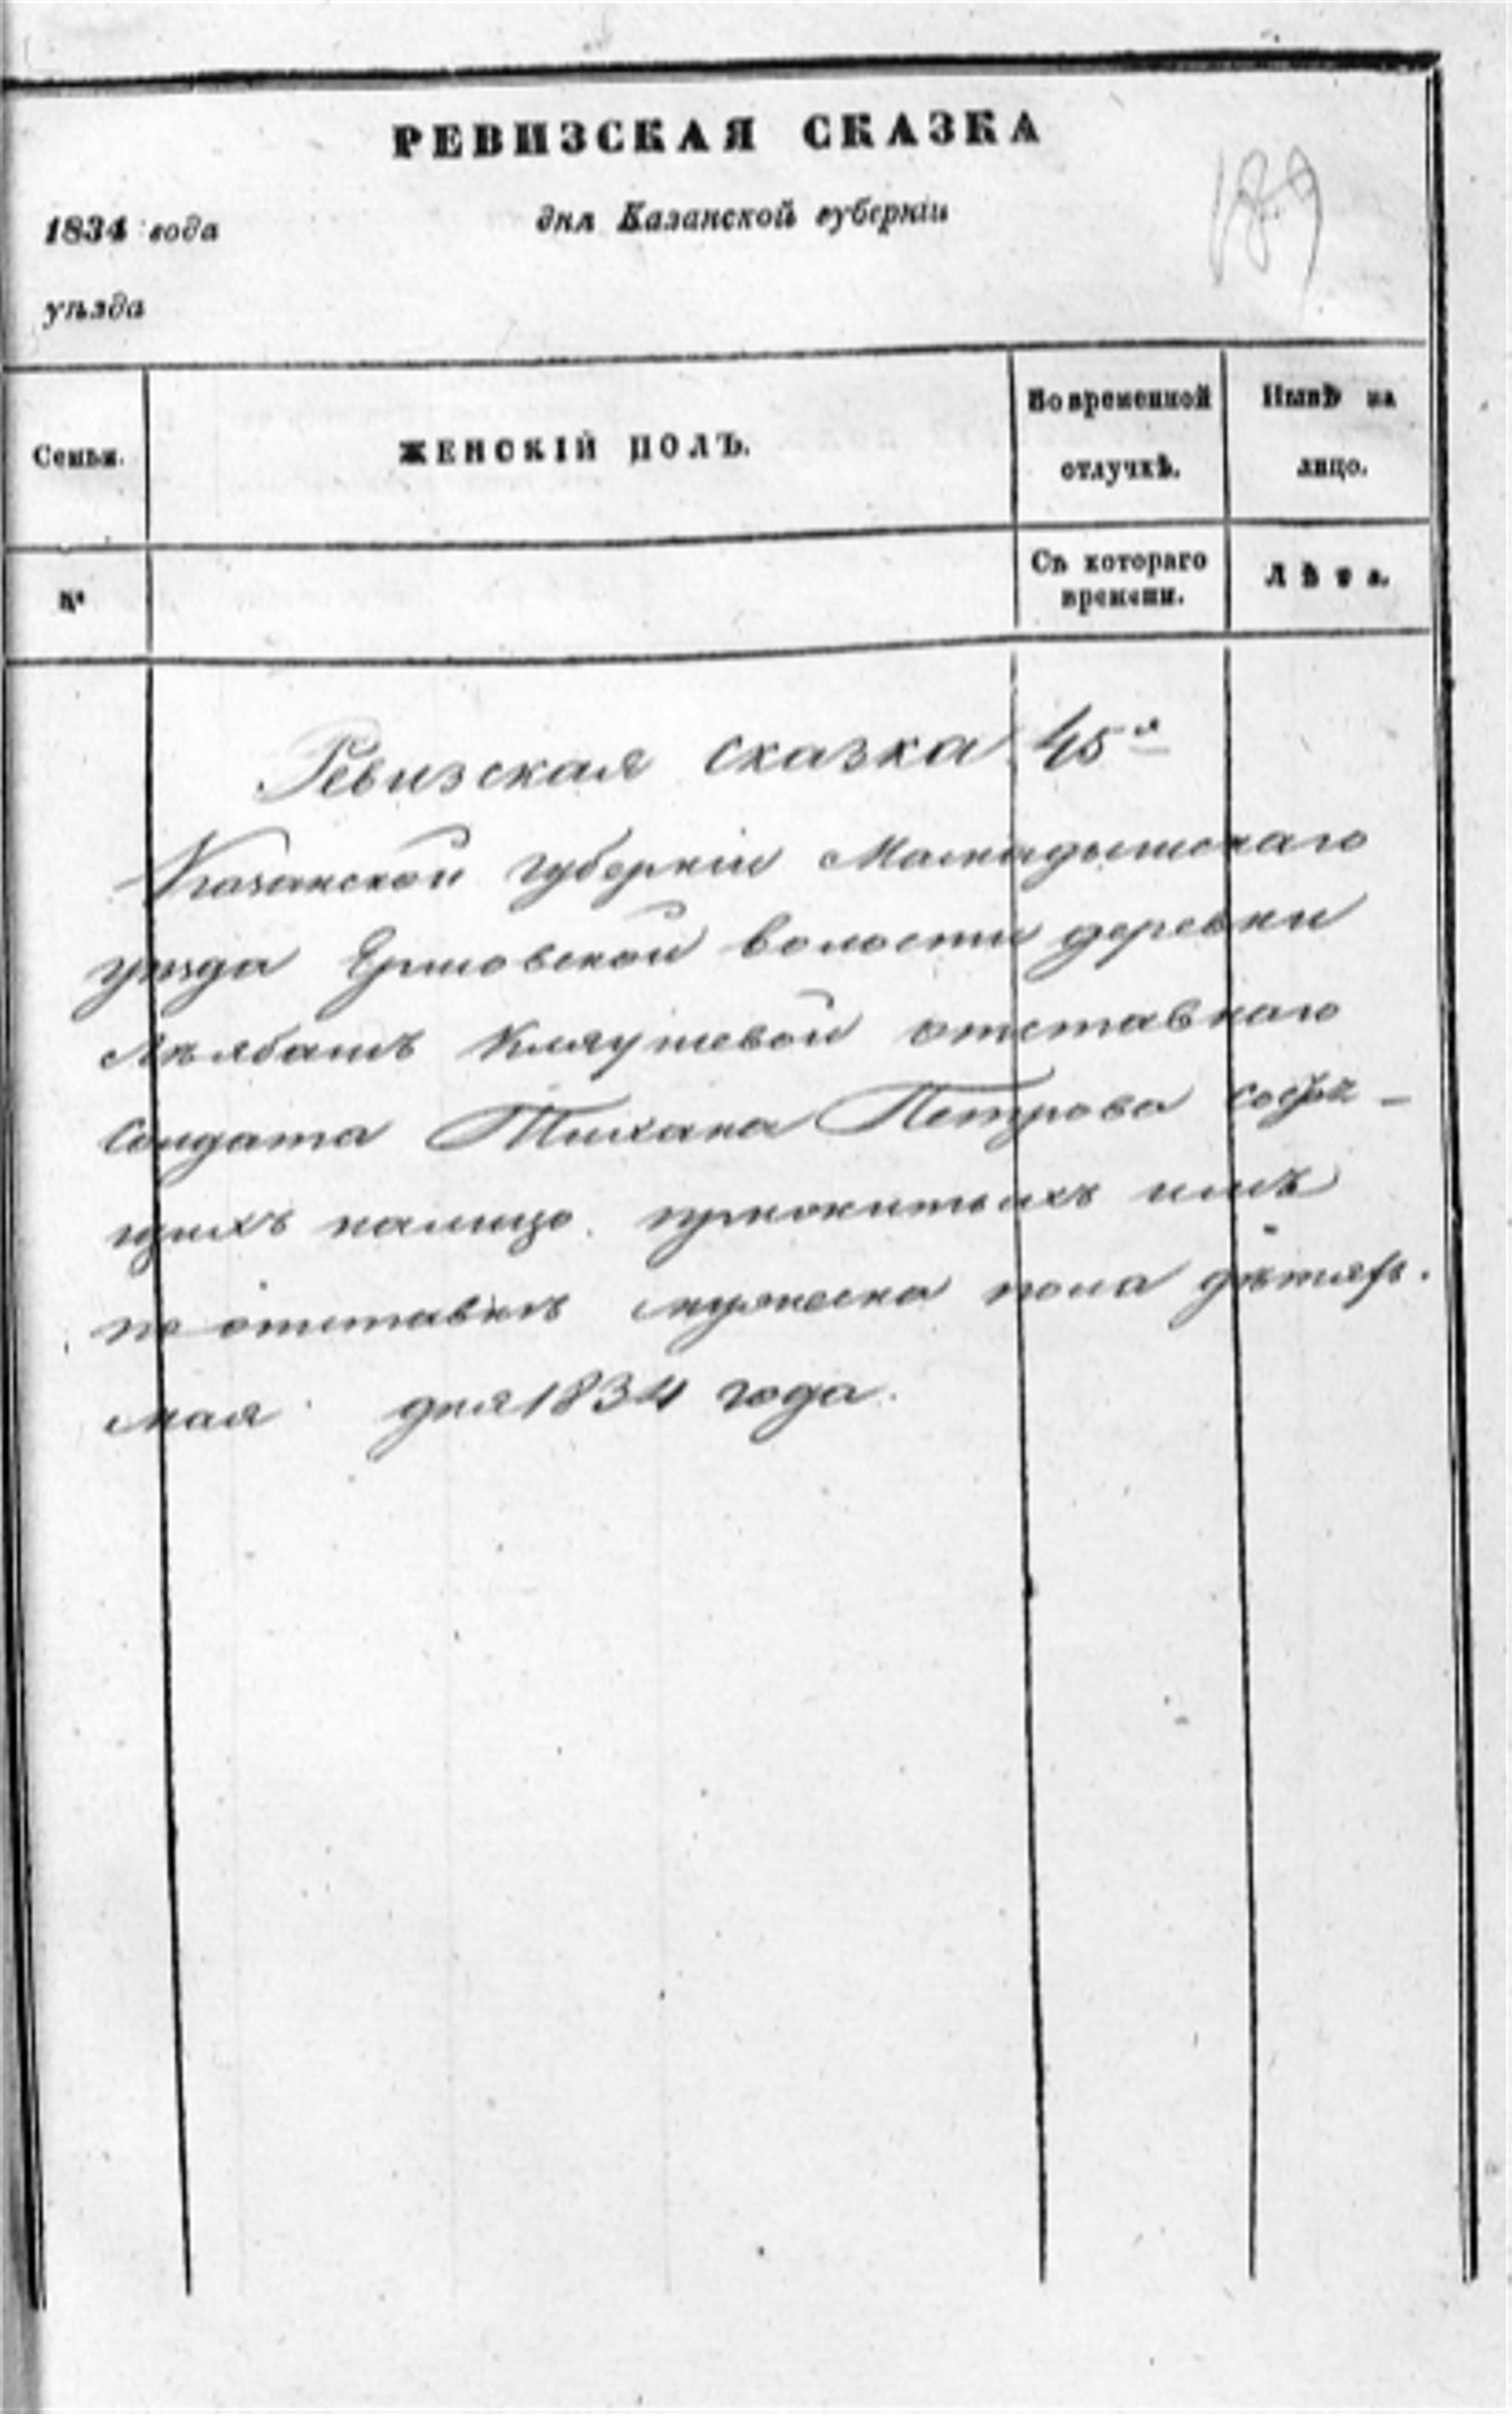 РЕВИЗСКАЯ СКАЗКА
189
1834 года дня Казанской губерніи
уѣзда
Семьи. ЖЕНСКІЙ ПОЛЪ. Во временной отлучкѣ. Нынѣ на лицо.
№ Съ котораго времени. Лѣта.
Ревизская сказка 45я
Казанской губерніи Мамадышскаго
уѣзда волости деревни
Кляушевой отставнаго
солдата Тихана Петрова состо-
ящихъ налицо прижитыхъ имъ
по отставкѣ мужеска пола дѣтяхъ.
мая дня 1834 года.